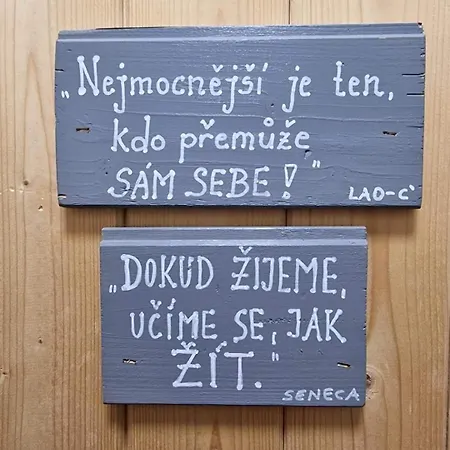 „Nejmocnější je ten,
kdo přemůže
SÁM SEBE!"
LAO-C'
„DOKUD ŽIJEME,
UČÍME SE, JAK
ŽÍT."
SENECA